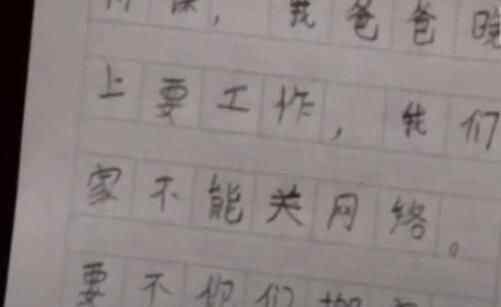 课，我爸爸晚
上要工作，我们
家不能关网络。
要不你们